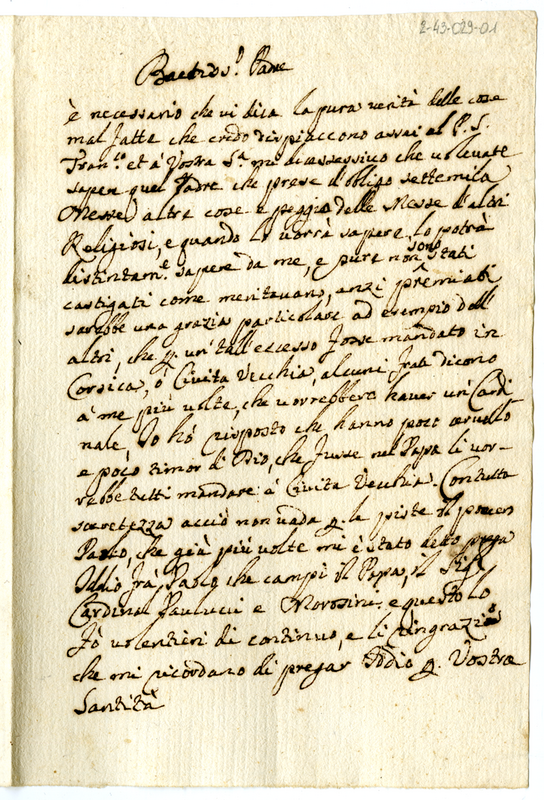 2-43-029-01
Beatiss.º Padre
è necessario che vi dica la pura verità delle cose
mal fatte che credo dispiaccono assai al P. S.
Fran.co et à Vostra S.tà che volevate
saper quel Padre che prese d'obligo settemila
Messe, altre cose e peggio delle Messe d'altri
Religiosi, e quando lo vorrà sapere lo potrà
distintam.te sapere da me, e pure non sono stati
castigati come meritavano, anzi premiati
sarebbe una grazia particolare ad esempio dell'
altri, che p. un tall'eccesso fosse mandato in
Corsica, ò Civita Vecchia, alcuni frati dicono
à me più volte, che vorrebbero haver un Cardi
nale, Io hò risposto che hanno poco cervello
e poco timor di Dio, che fusse nel Papa li vor-
rebbe tutti mandare à Civita Vecchia. Con tutta
secretezza acciò non vada p. le piste il povero
Paolo, che già più volte mi è stato detto prega
Iddio fra Paolo che campi il Papa, il
Cardinal Paulucci e Morosini, e questo lo
fò volentieri di continuo, e li ringrazio
che mi ricordano di pregar Iddio p. Vostra
Santità